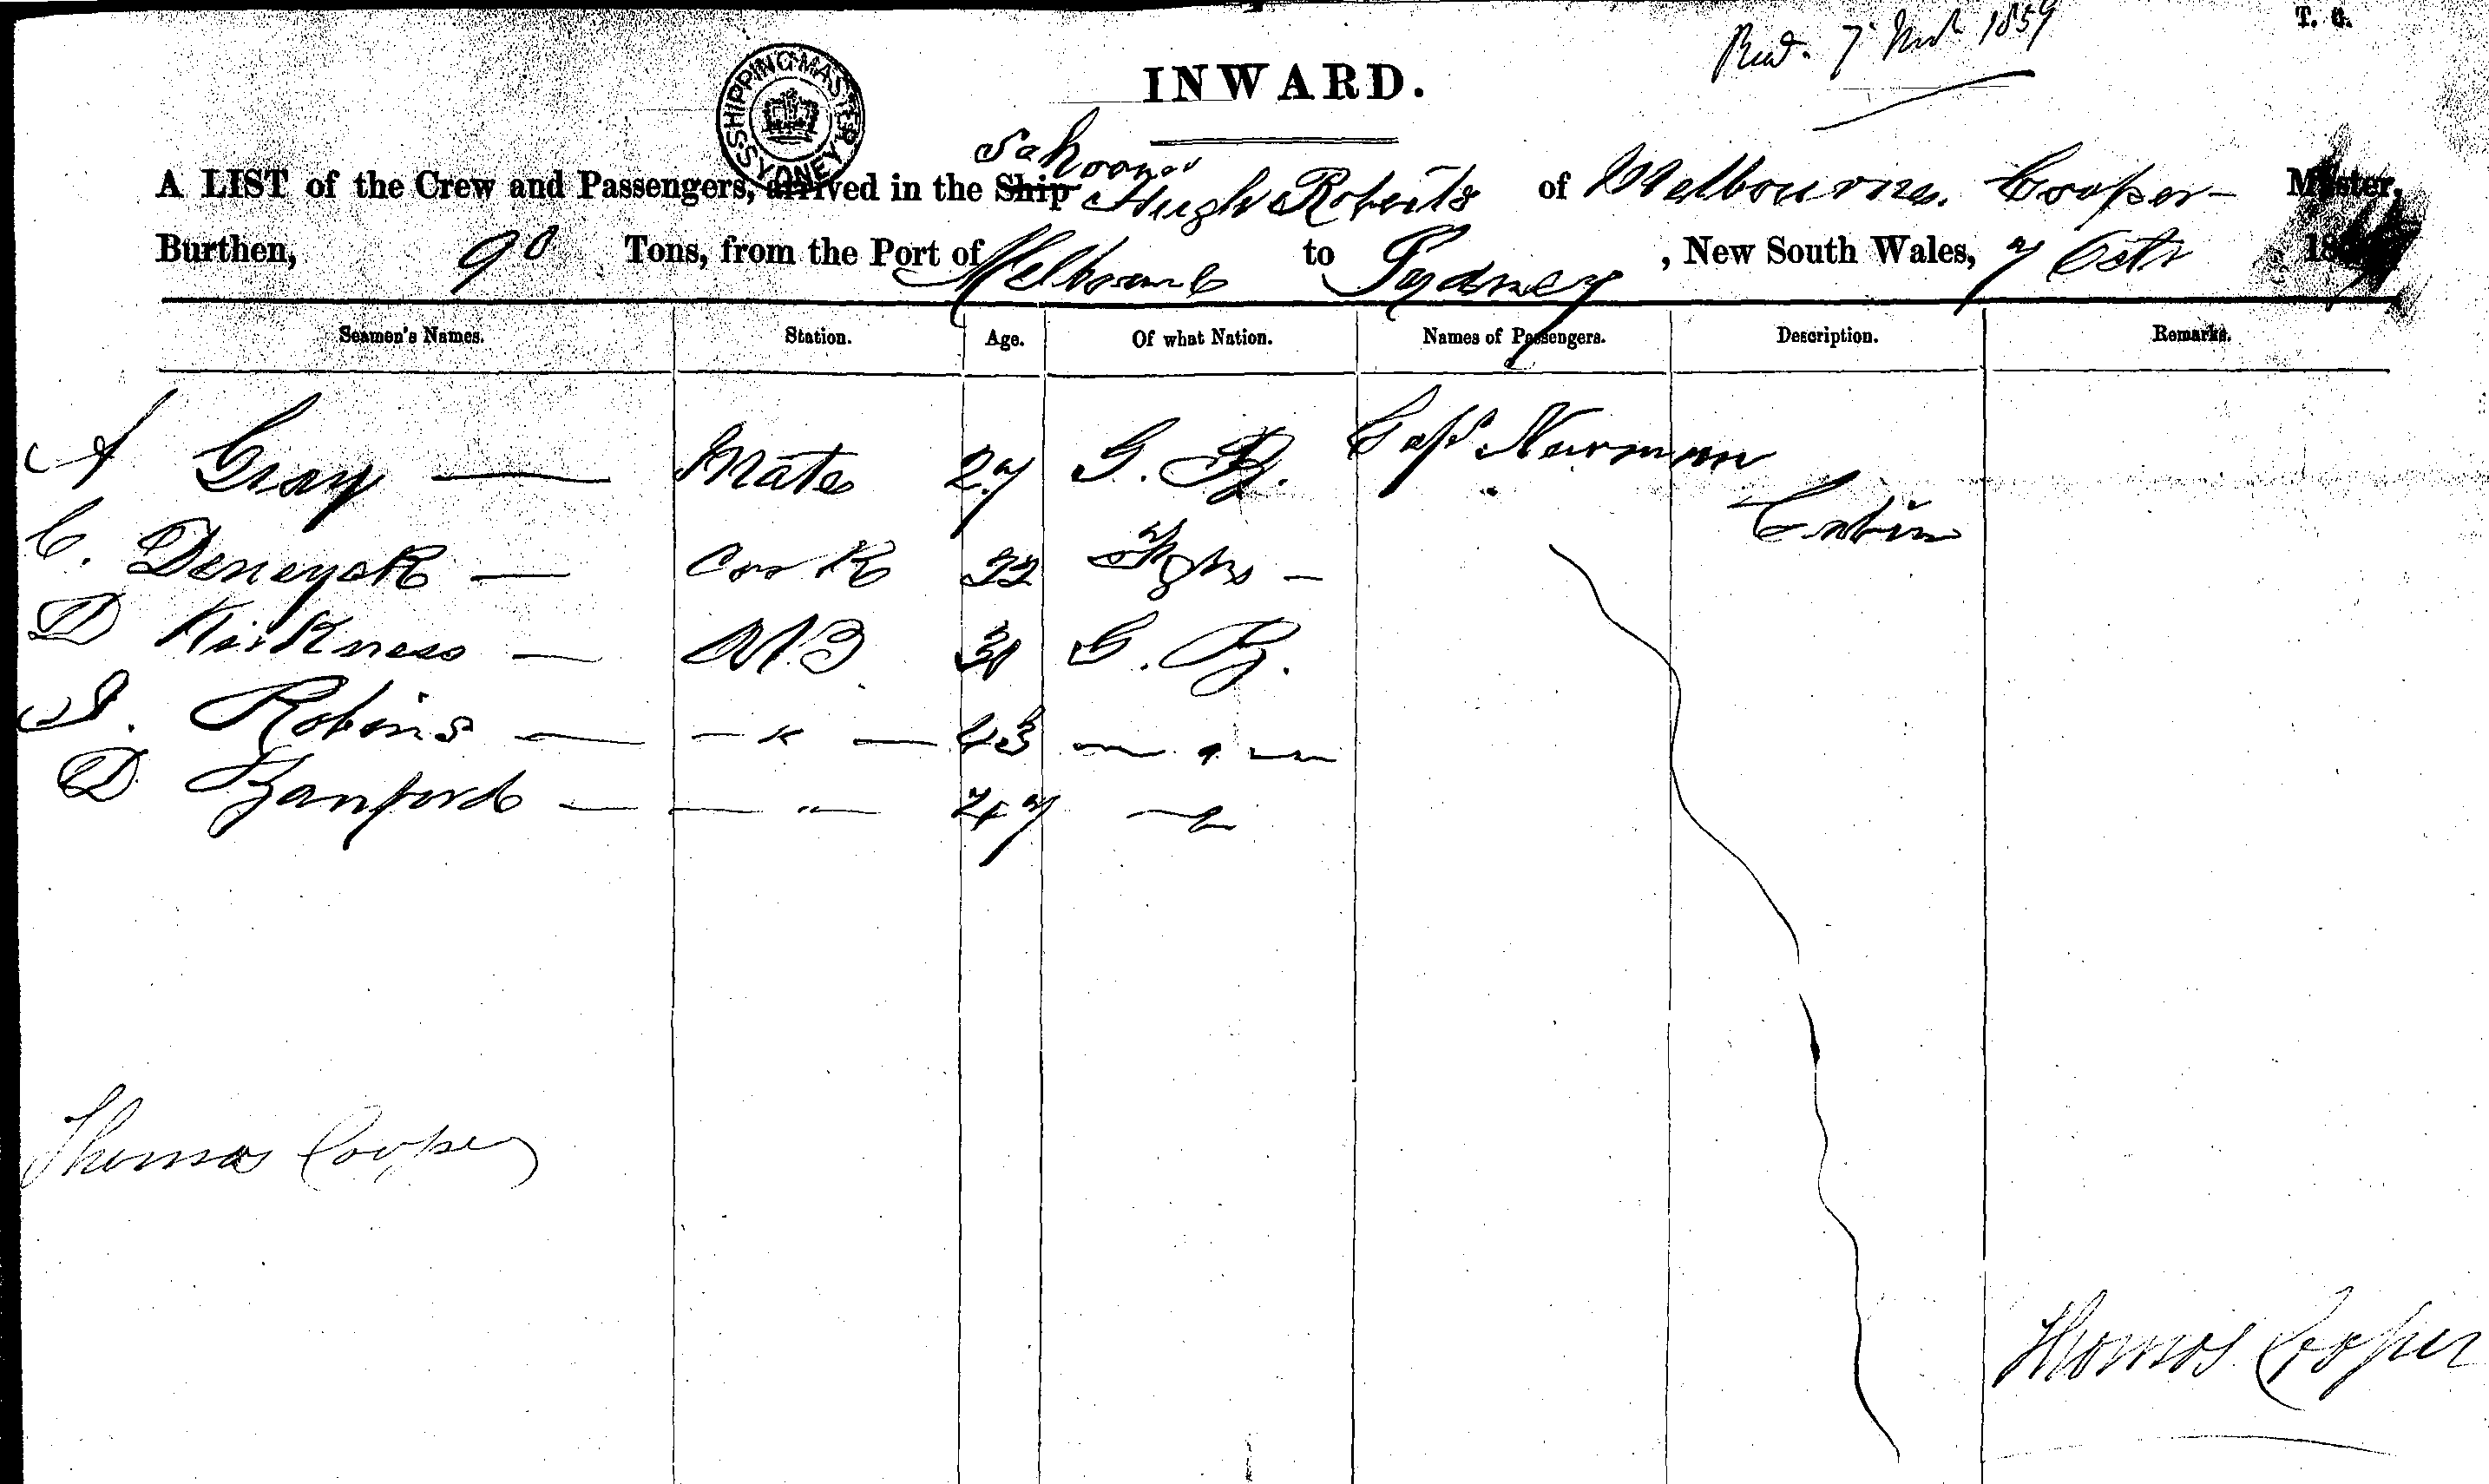 T. C.
Recd. 7 March 1859
SHIPPING MASTER SYDNEY
INWARD.
Schooner
A LIST of the Crew and Passengers, arrived in the Ship Hugh Roberts of Melbourne. Cooper Master,
Burthen, 90 Tons, from the Port of Melbourne to Sydney, New South Wales, 7 Octr 185
Seamen's Names. Station. Age. Of what Nation. Names of Passengers. Description. Remarks.
A Gray — Mate 27 G. B. Cap Norman
Cabin
C. Deneyck — Cook 22
D Kirkness — AB G. B.
J. Robins — — " — 43 — " —
D Banford — — " — 47 — " —
Thomas Cooper
Thomas Cooper